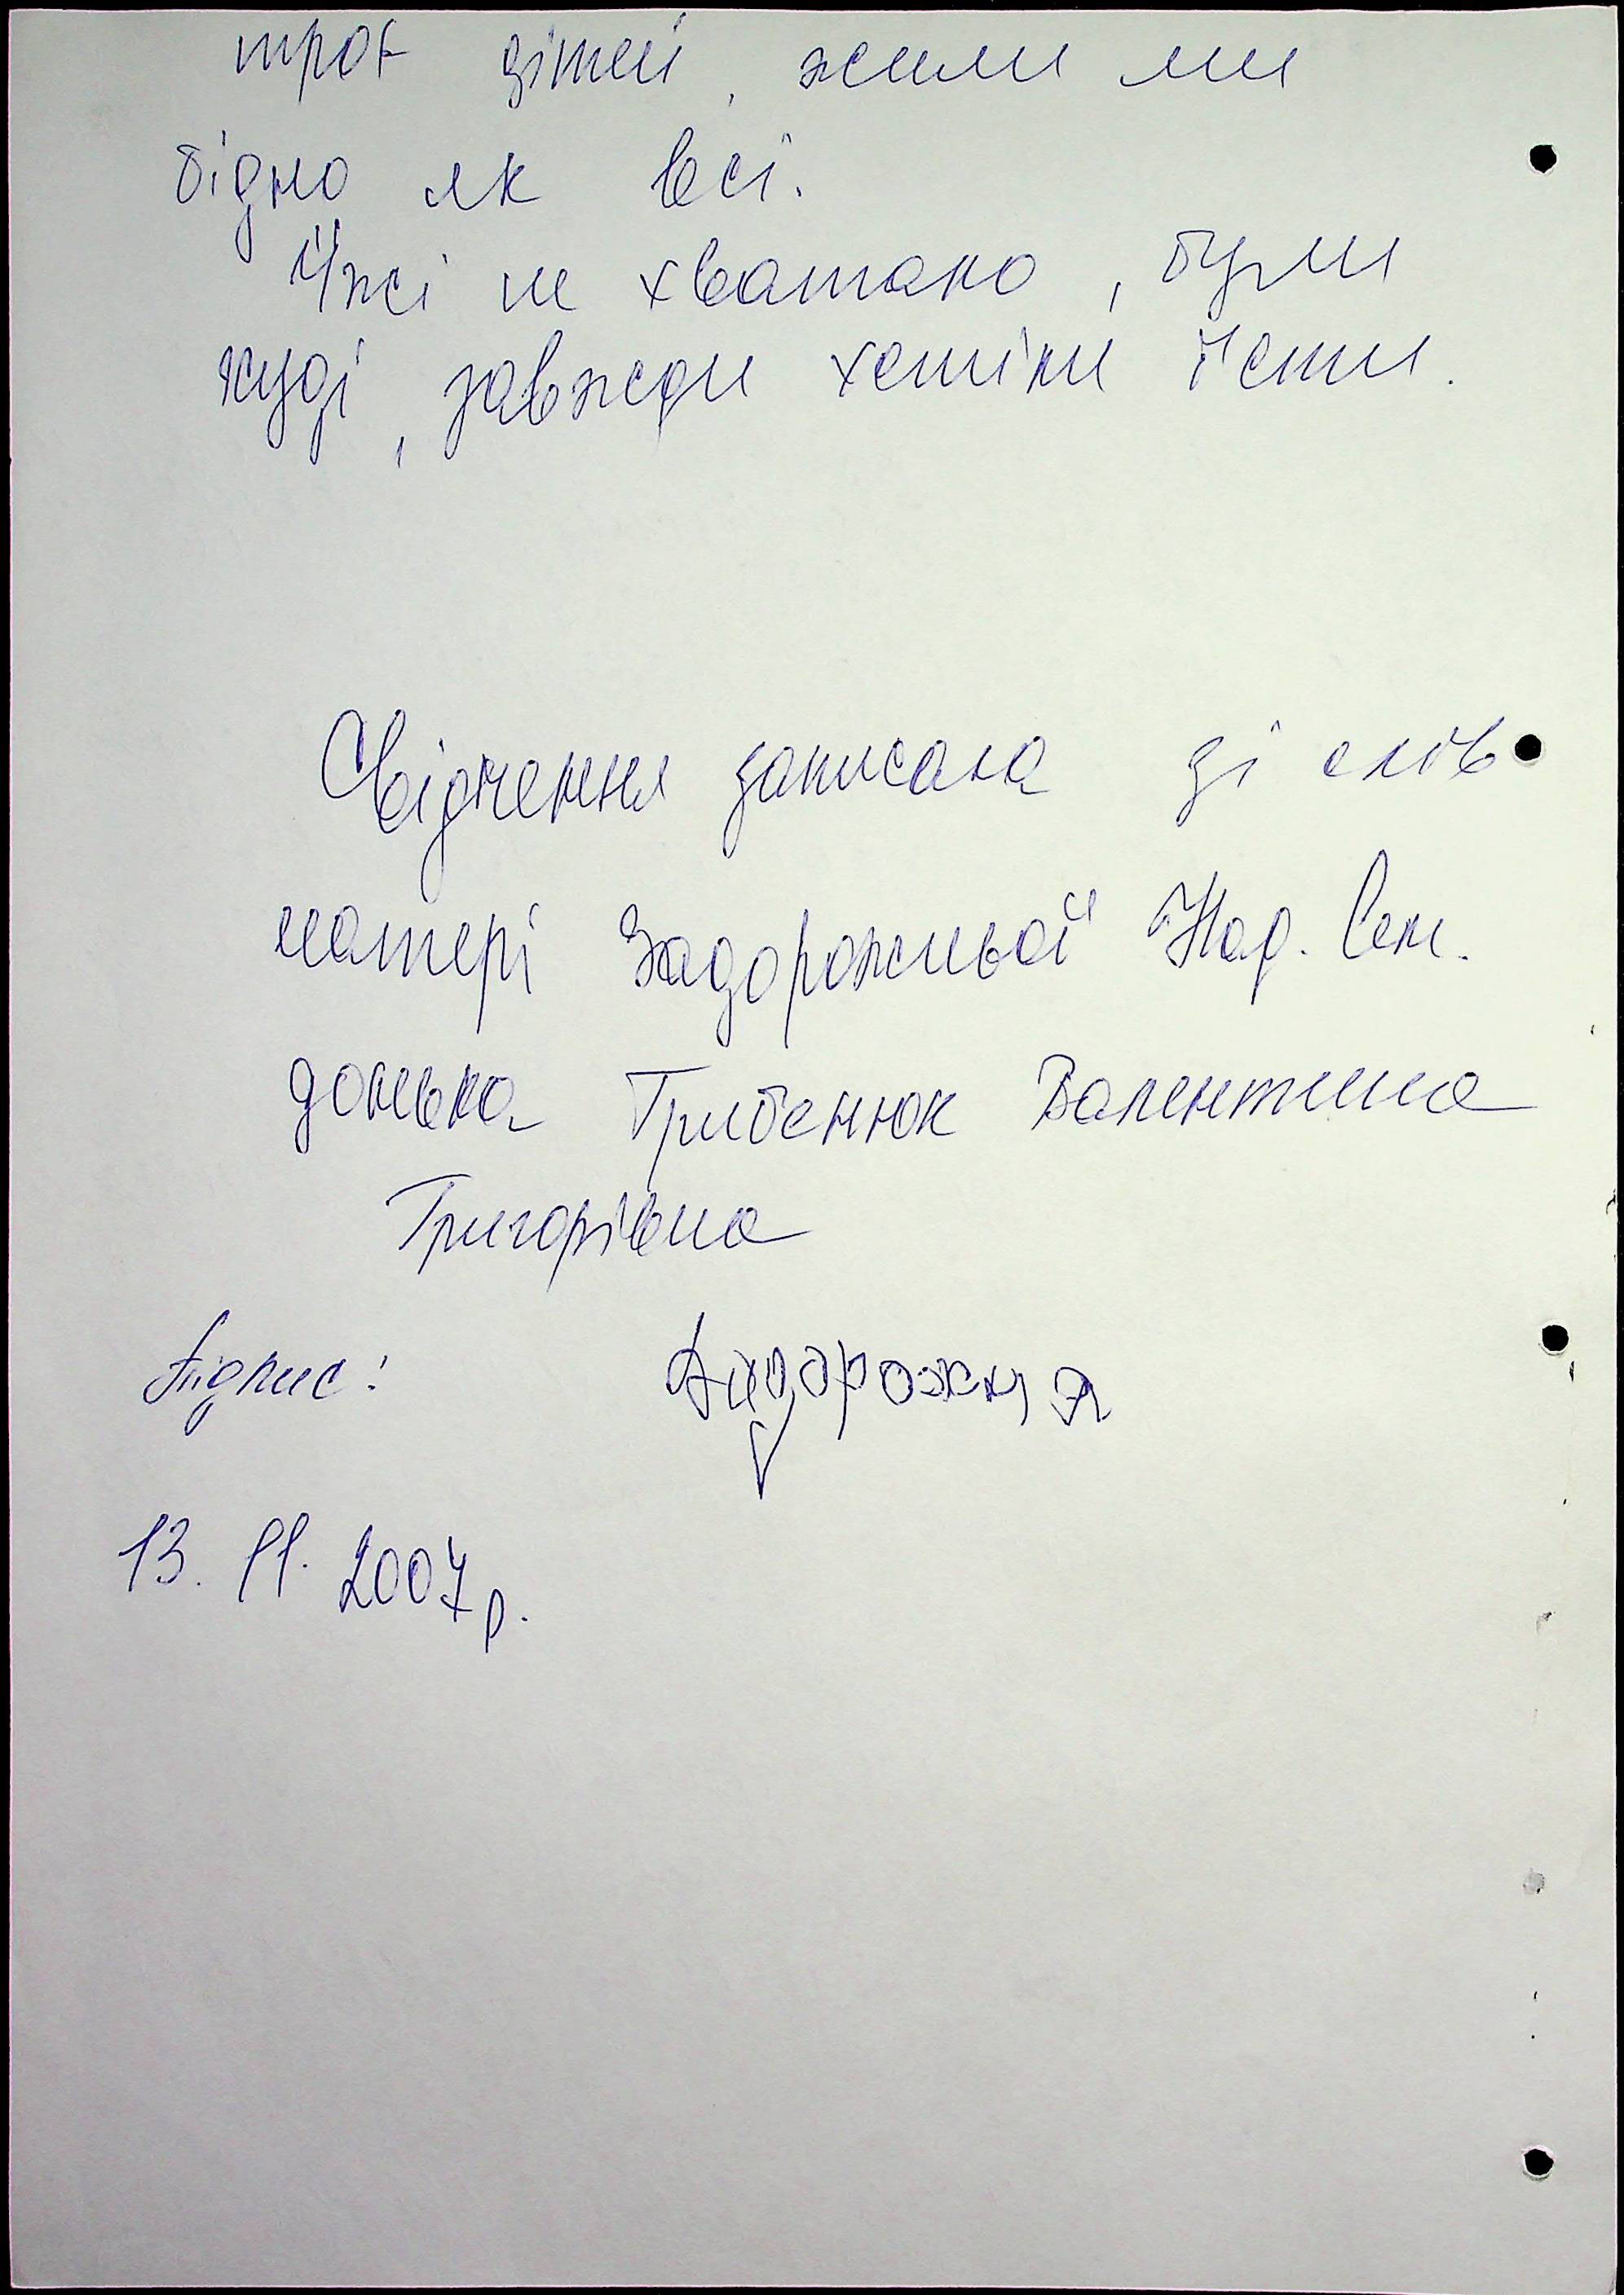 троє дітей, жили ми
бідно як всі.
Їжі не хватало, були
худі, завжди хотіли їсти.
Свідчення записала зі слів
матері Задорожньої Над. Сем.
донька Грибенюк Валентина
Григорівна
Підпис: Задорожня
13. 11. 2007 р.